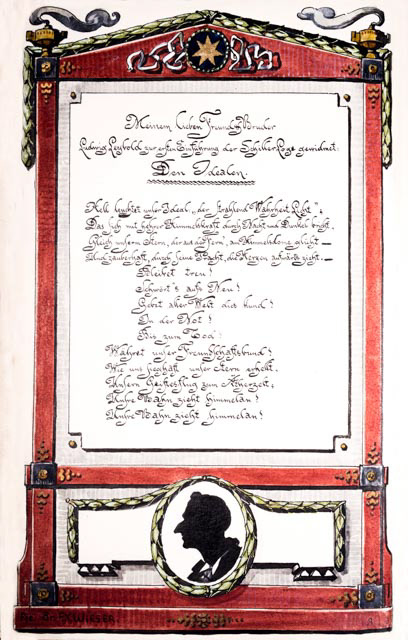 Meinem lieben Freund u. Bruder
Ludwig Leybold zur ersten Einführung der Schiller Loge gewidmet:
Den Idealen.
Hell leuchtet unser Ideal, „der strahlend Wahrheit Licht“;
Das sich mit hehrer Himmelskraft durch Nacht und Dunkel bricht.
Gleich unserm Stern, der ad astern, am Himmelsdome glüht —
Und zauberhaft, durch seine Pracht, die Herzen aufwärts zieht. —
Bleibet treu!
Schwört's aufs Neu!
Gebt aller Welt dies kund!
In der Not!
Bis zum Tod!
Wahret unser Freundschaftsbund!
Wie uns unser Stern erhebt.
Unsern Geistesflug zum Ätherzelt;
Unsre Bahn zieht himmelan!
Unsre Bahn zieht himmelan!